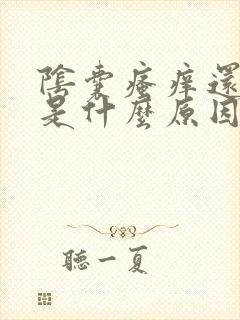 陰囊瘙癢還
是什麼原因
聽一夏